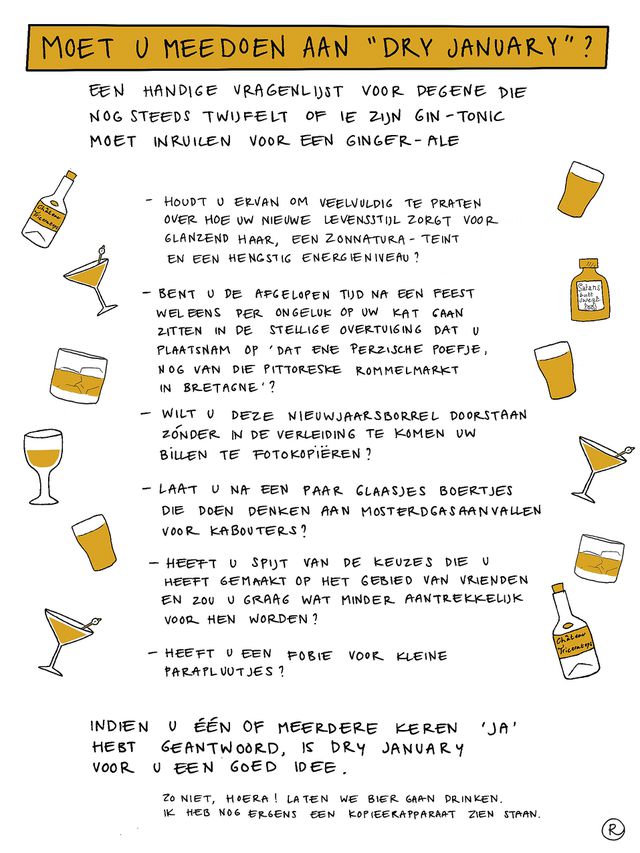 MOET U MEEDOEN AAN "DRY JANUARY"?
EEN HANDIGE VRAGENLIJST VOOR DEGENE DIE
NOG STEEDS TWIJFELT OF IE ZIJN GIN-TONIC
MOET INRUILEN VOOR EEN GINGER-ALE
- HOUDT U ERVAN OM VEELVULDIG TE PRATEN
OVER HOE UW NIEUWE LEVENSSTIJL ZORGT VOOR
GLANZEND HAAR, EEN ZONNATURA-TEINT
EN EEN HENGSTIG ENERGIENIVEAU?
- BENT U DE AFGELOPEN TIJD NA EEN FEEST
WELEENS PER ONGELUK OP UW KAT GAAN
ZITTEN IN DE STELLIGE OVERTUIGING DAT U
PLAATSNAM OP 'DAT ENE PERZISCHE POEFJE,
NOG VAN DIE PITTORESKE ROMMELMARKT
IN BRETAGNE'?
- WILT U DEZE NIEUWJAARSBORREL DOORSTAAN
ZÓNDER IN DE VERLEIDING TE KOMEN UW
BILLEN TE FOTOKOPIËREN?
- LAAT U NA EEN PAAR GLAASJES BOERTJES
DIE DOEN DENKEN AAN MOSTERDGASAANVALLEN
VOOR KABOUTERS?
- HEEFT U SPIJT VAN DE KEUZES DIE U
HEEFT GEMAAKT OP HET GEBIED VAN VRIENDEN
EN ZOU U GRAAG WAT MINDER AANTREKKELIJK
VOOR HEN WORDEN?
- HEEFT U EEN FOBIE VOOR KLEINE
PARAPLUUTJES?
INDIEN U ÉÉN OF MEERDERE KEREN 'JA'
HEBT GEANTWOORD, IS DRY JANUARY
VOOR U EEN GOED IDEE.
ZO NIET, HOERA! LATEN WE BIER GAAN DRINKEN.
IK HEB NOG ERGENS EEN KOPIEERAPPARAAT ZIEN STAAN.
Château
Château
Satans
R